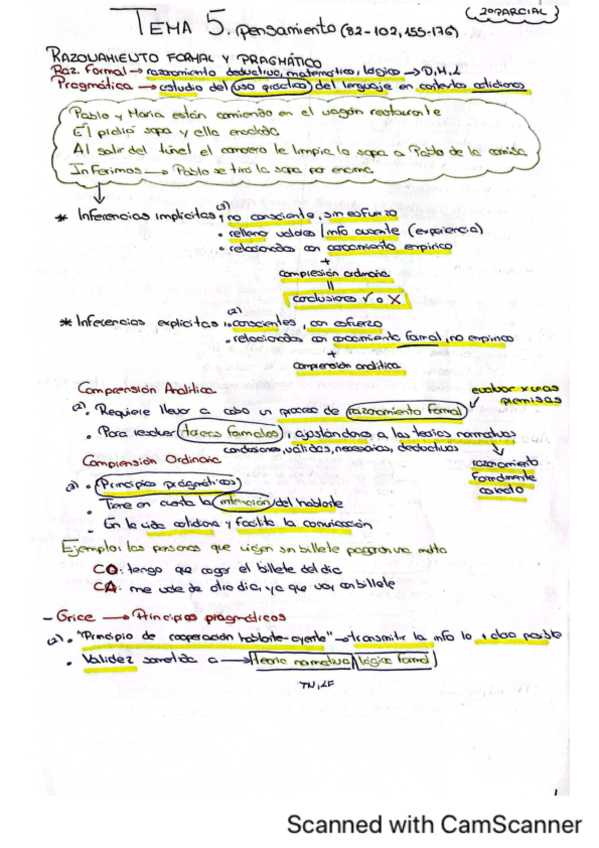 TEMA 5. pensamiento (82-102, 155-176) (2º PARCIAL)
RAZONAMIENTO FORMAL Y PRAGMÁTICO
Raz. Formal → razonamiento deductivo, matemático, lógico → D, M, L
Pragmática → estudio del uso práctico del lenguaje en contextos cotidianos
Pablo y Maria están comiendo en el vagón restaurante
Él pidió sopa y ella ensalada
Al salir del túnel el camarero le limpia la sopa a Pablo de la camisa
Inferimos → Pablo se tiró la sopa por encima
* Inferencias implícitas: no consciente, sin esfuerzo
(3)
• relleno valores / info ausente (experiencia)
• relacionados con conocimiento empírico
+
compresión ordinaria
||
conclusiones V o X
(2)
* Inferencias explícitas: • conscientes, con esfuerzo
• relacionados con conocimiento formal, no empírico
+
comprensión analítica
Comprensión Analítica
evaluar xunas premisas
(2) • Requiere llevar a cabo un proceso de razonamiento formal
• Para resolver tareas formales, ajustándonos a las teorías normativas
conclusiones, válidas, necesarias, deductivas
razonamiento formalmente correcto
Comprensión Ordinaria
(3) • Principios pragmáticos
• Tiene en cuenta la intención del hablante
• En la vida cotidiana y facilita la comunicación
Ejemplo: las personas que viajen sin billete pagaran una multa
CO: tengo que coger el billete del dia
CA: me vale de otro dia, ya que voy con billete
- Grice → Principios pragmáticos
(2) • "Principio de cooperación hablante-oyente" → transmitir la info lo + claro posible
• Validez sometida a → Teoría normativa / lógica formal
TN, LF
1
Scanned with CamScanner